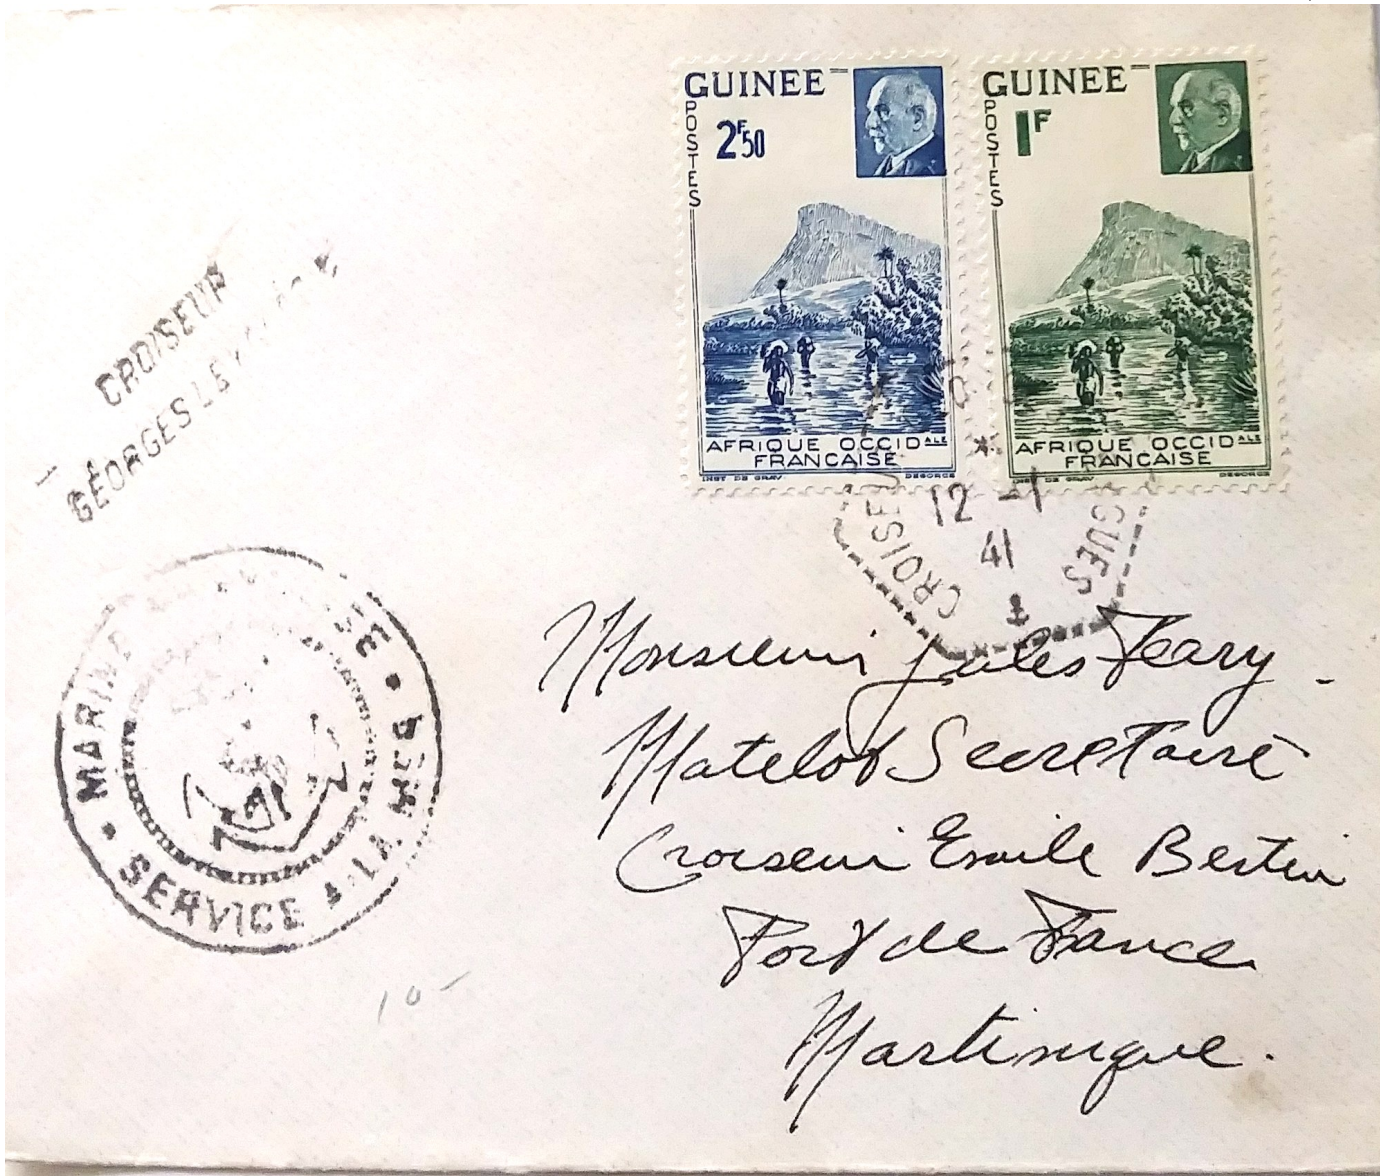 GUINEE
POSTES
2F50
AFRIQUE OCCIDALE
FRANCAISE
INST DE GRAV
DEGORCE
GUINEE
POSTES
1F
AFRIQUE OCCIDALE
FRANCAISE
INST DE GRAV
DEGORCE
CROISEUR
GEORGES
CROISEU
12 -1
41
GUES
MARINE
SERVICE A LA MER
Monsieur Jules
Matelot Secretaire
Croiseur Emile Bertin
Fort de France
Martinique.
10-